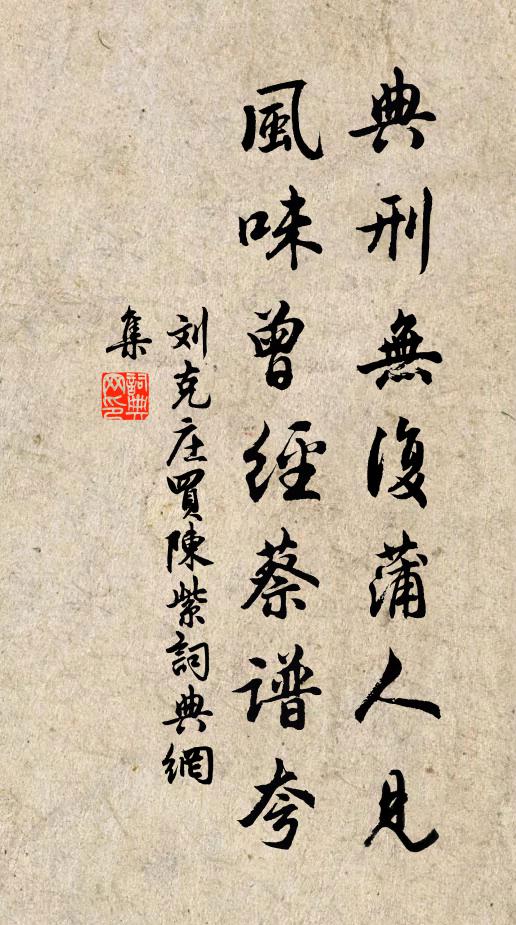 典刑無復蒲人見
風味曾經蔡譜夸
刘克庄買陳紫詞典網
集
詞典
网印